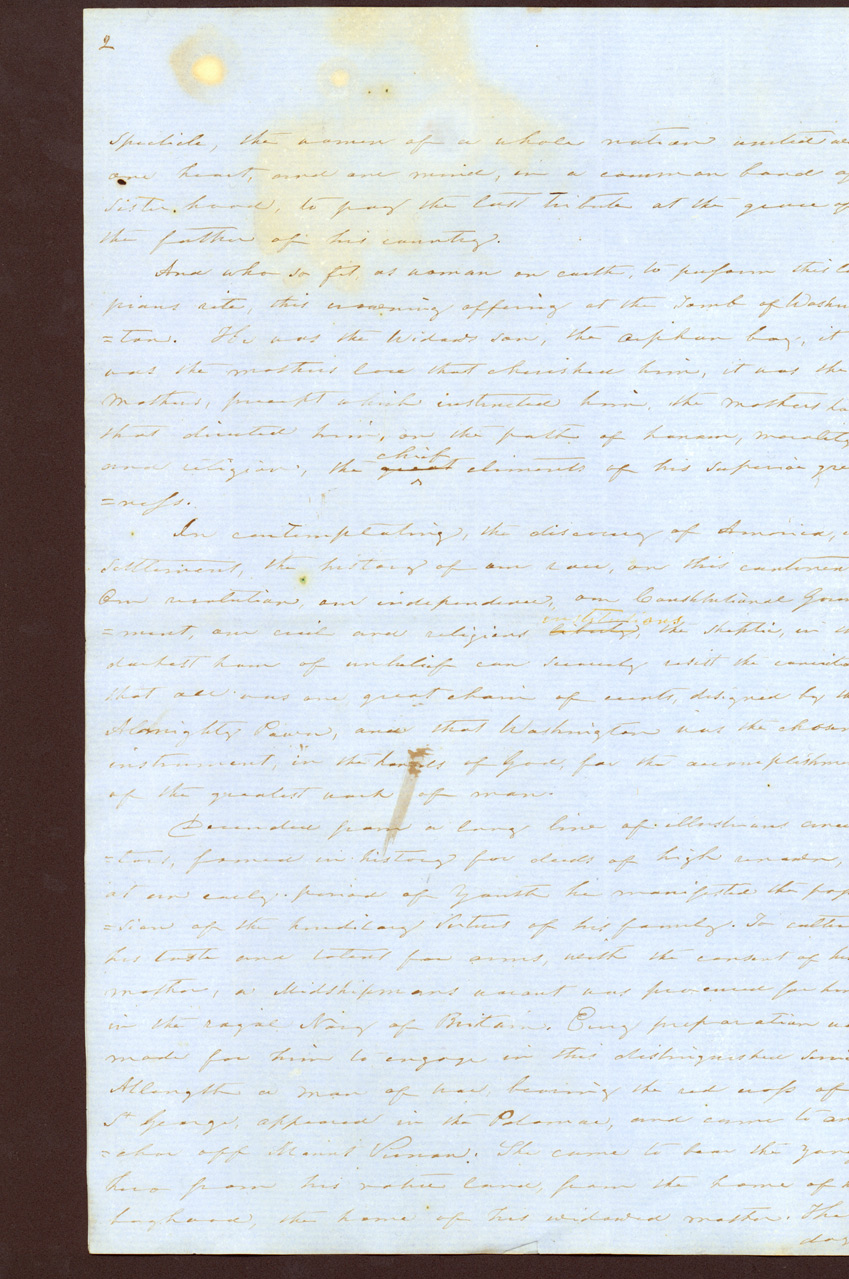 2
specticle, the women of a whole nation united as
one heart, and one mind, in a common band of
Sister hood, to pay the last tribute at the grave of
the father of his country.
And who so fit as woman on earth, to perform this
pious rite, this evening offering at the Tomb of Washin
=ton. He was the Widows son, the orphan boy, it
was the mothers love that cherished him, it was the
mothers, precept which instructed him, the mothers ha
that directed him, on the path of honour, morality
and religion, the great chief eliments of his superior gre
=ness.
In contemplating, the discovery of America,
settlement, the history of our race, on this continent
Our revolution, our independence, our Constitutional Gover
=ment, our civil and religious liberty institutions, the skeptic, in the
darkest hour of unbelief can scarcely resist the convic
that all was one great chain of events, designed by the
Almighty Power, and that Washington was the chosen
instrument, in the hands of God, for the accomplishme
of the greatest work of man.
Decended from a long line of illustrious ances
=tors, famed in history for deeds of high renown,
at an early period of Youth he manifested the pos
=sion of the hereditary Virtues of his family. To cultiv
his taste and talent for arms, with the consent of his
mother, a Midshipmans warant was procured for him
in the royal Navy of Britain. Every preparation was
made for him to engage in this distinguished servi
At length a man of war, bearing the red cross of
St George, appeared in the Potomac, and came to an
=chor off Mount Vernon. She came to bear the young
hero from his native land, from the home of his
boyhood, the home of his widowed mother. The
day